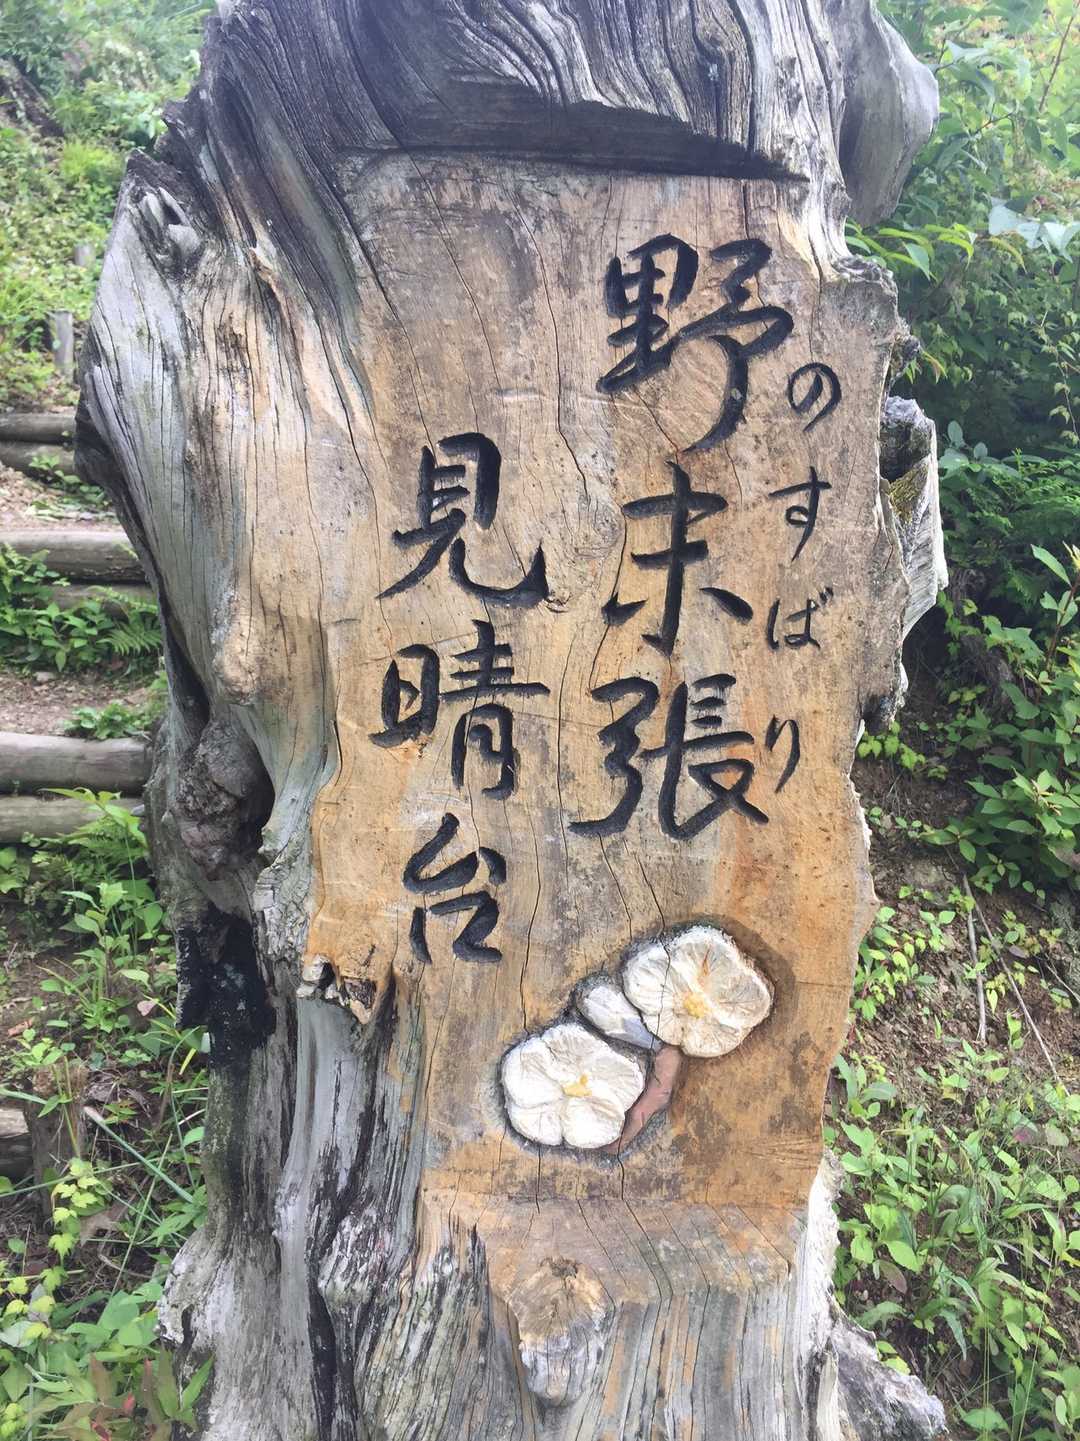 野末張
のすばり
見晴台